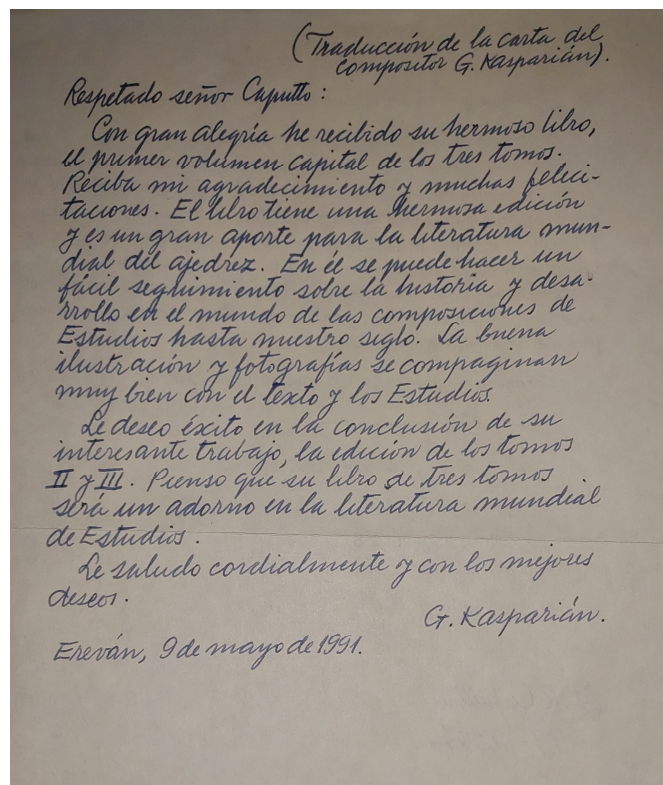 (Traducción de la carta del
compositor G. Kasparián).
Respetado señor Caputto :
Con gran alegría he recibido su hermoso libro,
el primer volumen capital de los tres tomos.
Reciba mi agradecimiento y muchas felici-
taciones. El libro tiene una hermosa edición
y es un gran aporte para la literatura mun-
dial del ajedrez. En él se puede hacer un
fácil seguimiento sobre la historia y desa-
rrollo en el mundo de las composiciones de
Estudios hasta nuestro siglo. La buena
ilustración y fotografías se compaginan
muy bien con el texto y los Estudios.
Le deseo éxito en la conclusión de su
interesante trabajo, la edición de los tomos
II y III. Pienso que su libro de tres tomos
será un adorno en la literatura mundial
de Estudios.
Le saludo cordialmente y con los mejores
deseos.
G. Kasparián.
Ereván, 9 de mayo de 1991.